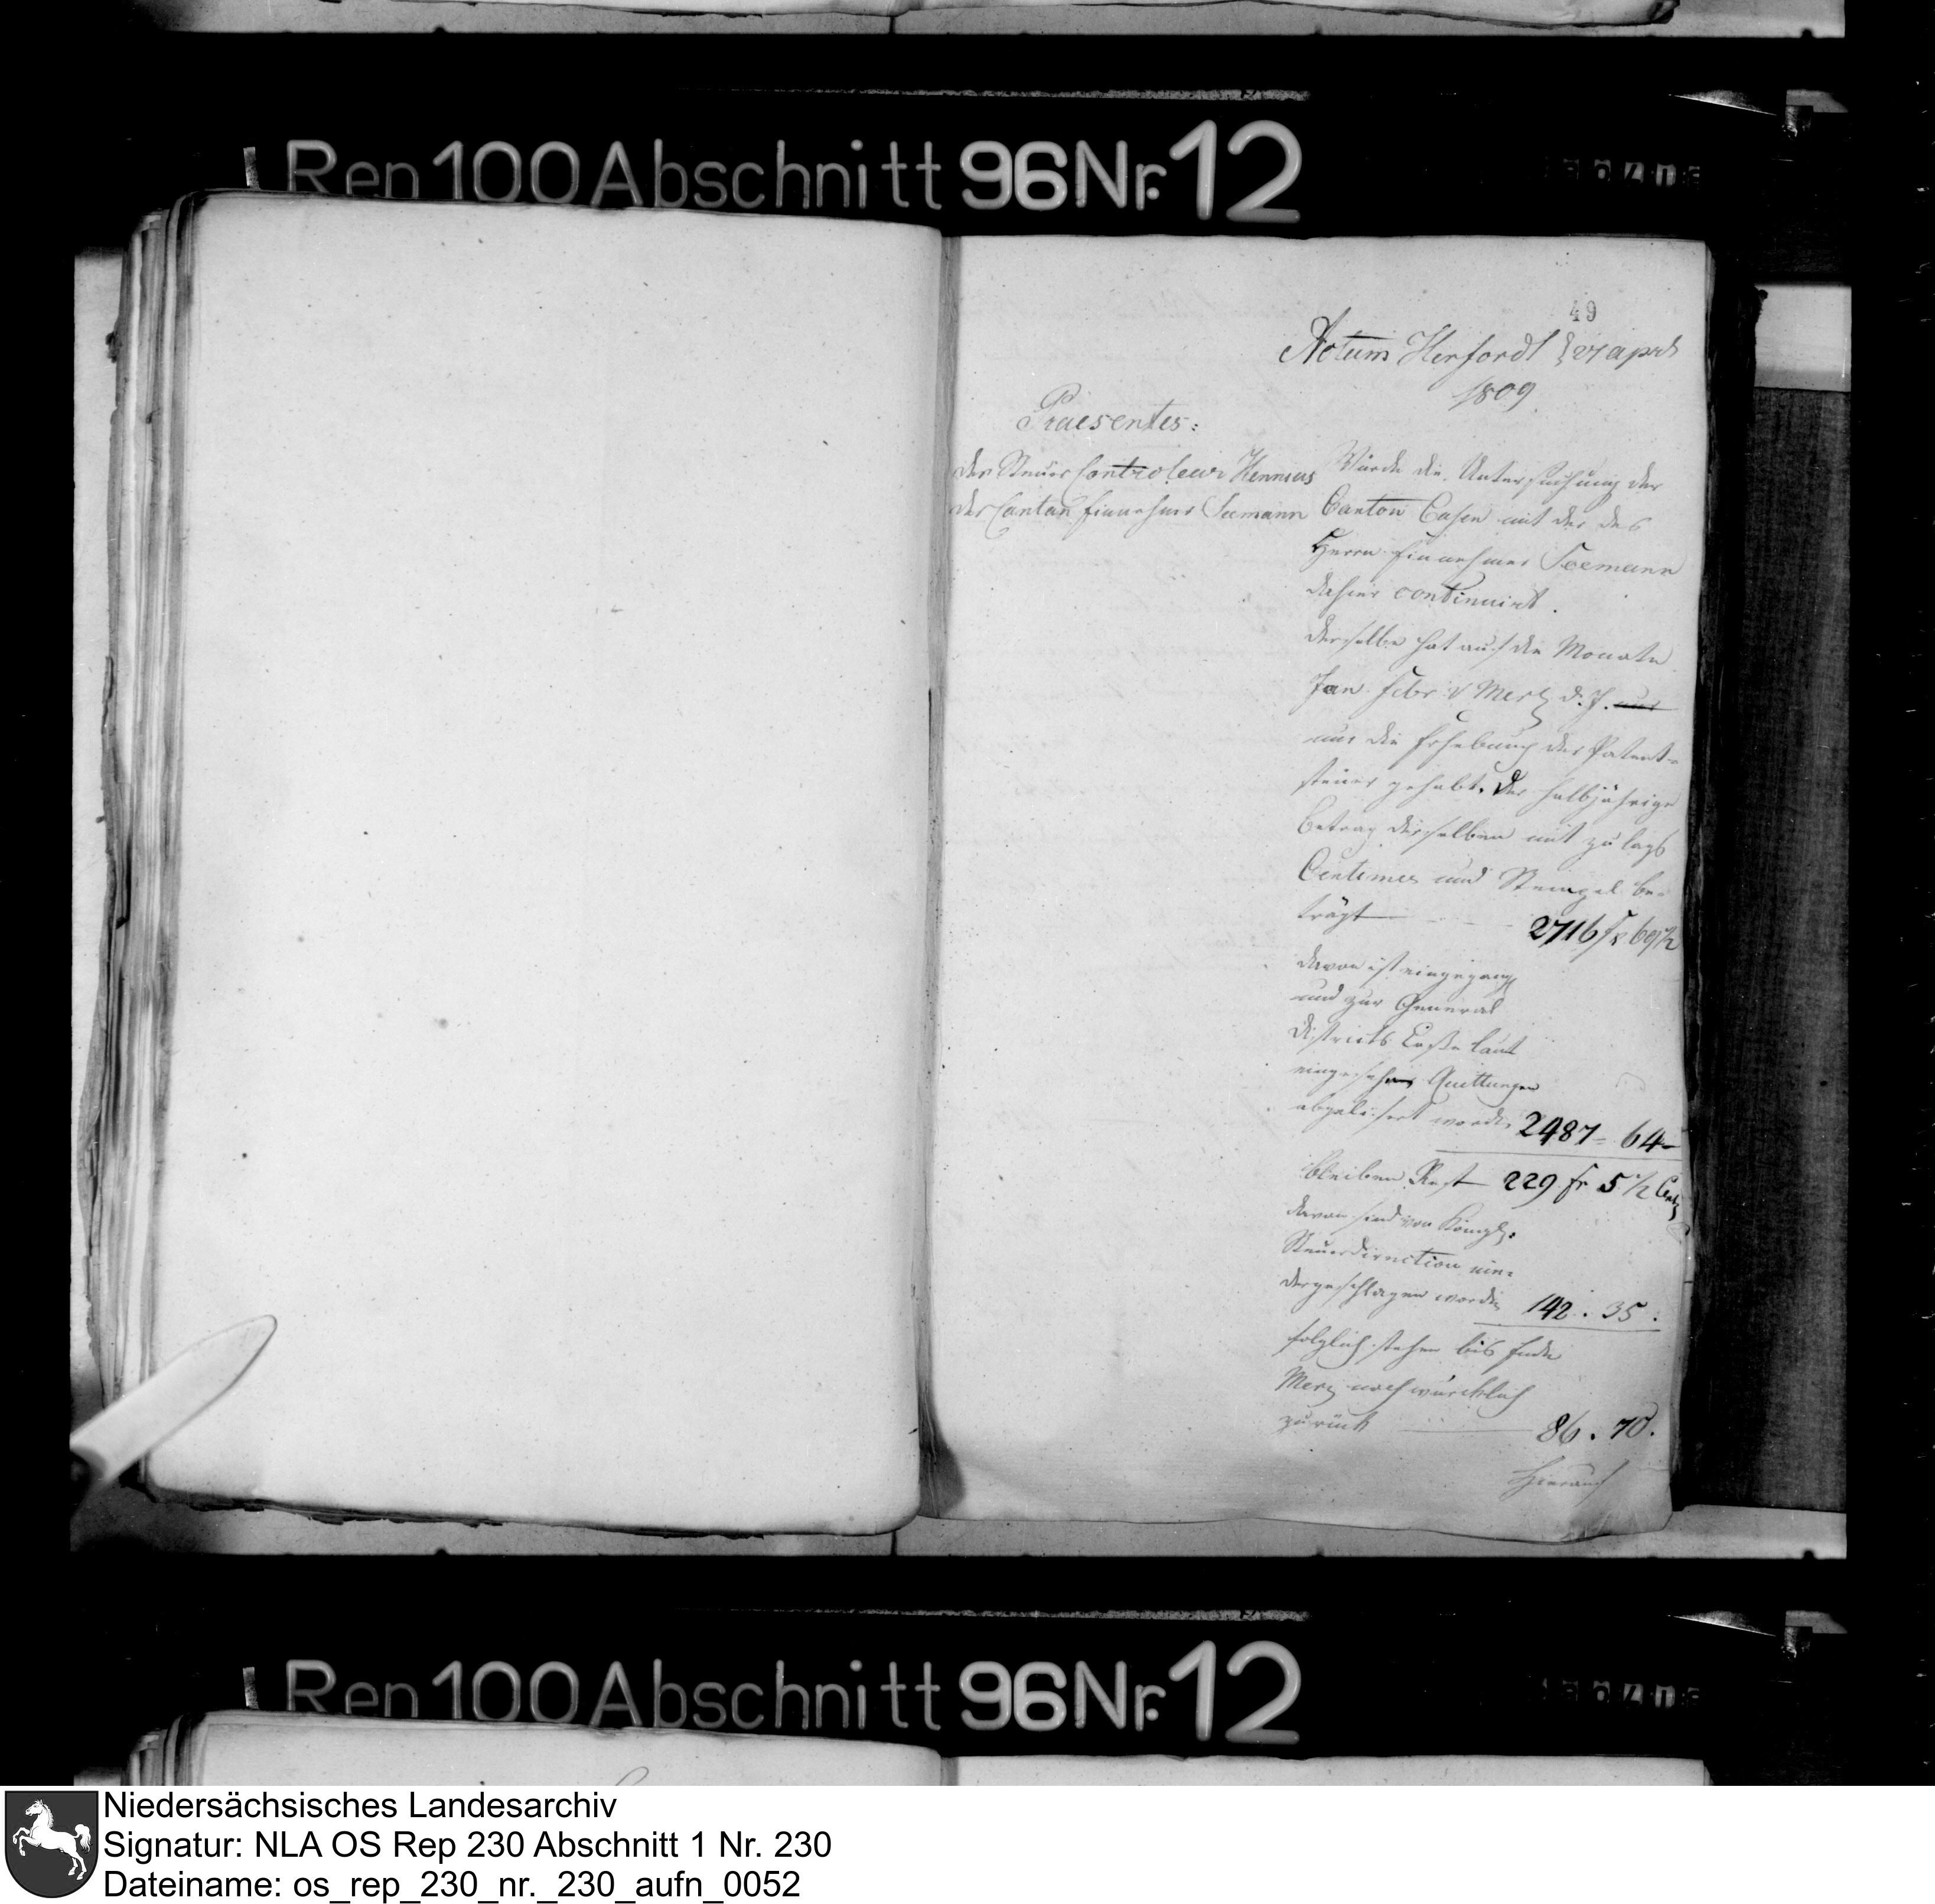 Rep 100 Abschnitt 96 Nr. 12
49
Actum Herfordt 27 april
1809
Praesentes:
der Steuer Controleur Hennius
der Canton Einnehmer Seemann
Wurde die Untersuchung der
Canton Cassen mit der des
Herrn Einnehmer Seemann
dahier continuirt.
Derselbe hat auf die Monate
Jan. Febr. u Mertz d. J. nur
nur die Erhebung der Patent-
steuer gehabt. Der halbjährige
Betrag derselben mit zulags
Centimes und Stempel be-
trägt 2716 fr 69 1/2
davon ist eingegang
und zur General
Districts Casse laut
eingesehene Quittungen
abgeliefert worden 2487 = 64 -
bleiben Rest 229 fr 5 1/2 Cent
davon sind von Königl.
Steuerdirection nie-
dergeschlagen worden 142 . 35 .
folglich stehen bis Ende
Merz noch würcklich
zurück 86 . 70 .
Hierauf
Rep 100 Abschnitt 96 Nr. 12
Niedersächsisches Landesarchiv
Signatur: NLA OS Rep 230 Abschnitt 1 Nr. 230
Dateiname: os_rep_230_nr._230_aufn_0052